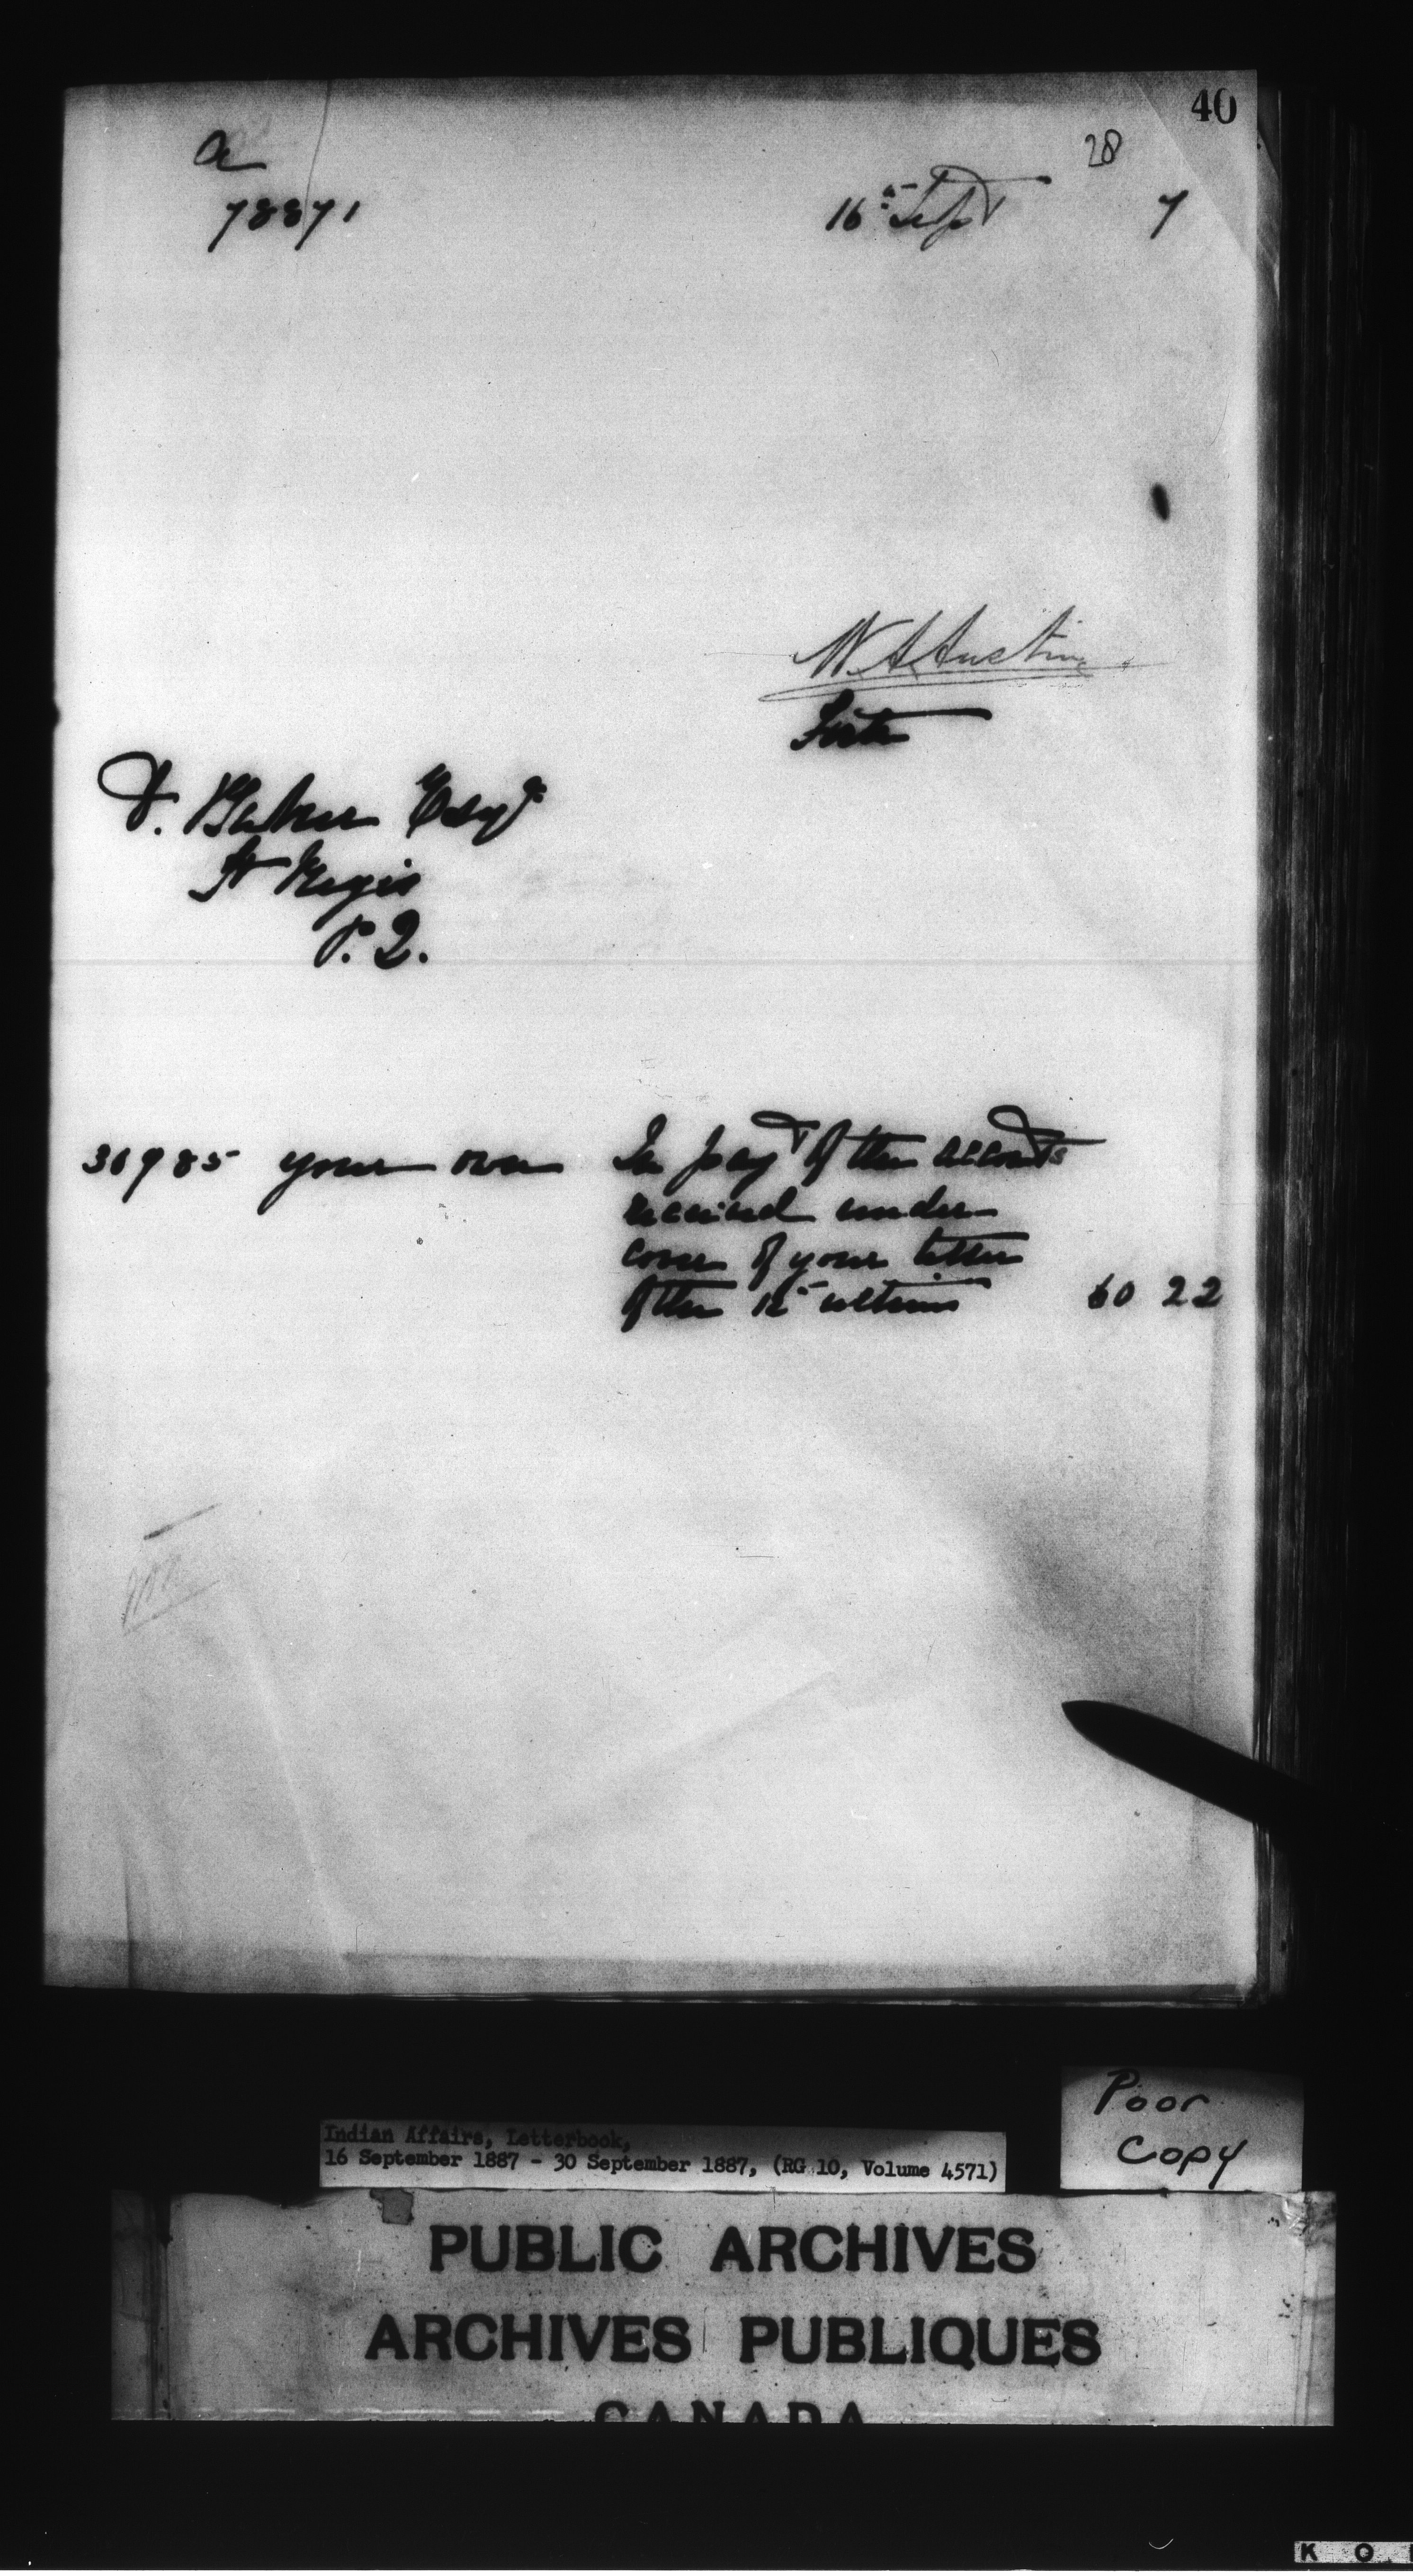 40
28
a
78871 16th Sept 7
W A Austin
D. Baker Esqr
St Regis
P.Q.
30985 your own In payt of the accounts
received under
cover of your letter
of the 12th ultimo 60 22
Poor
Copy
Indian Affairs, Letterbook,
16 September 1887 - 30 September 1887, (RG 10, Volume 4571)
PUBLIC ARCHIVES
ARCHIVES PUBLIQUES
CANADA